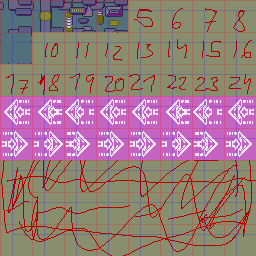 5 6 7 8
10 11 12 13 14 15 16
17 18 19 20 21 22 23 24